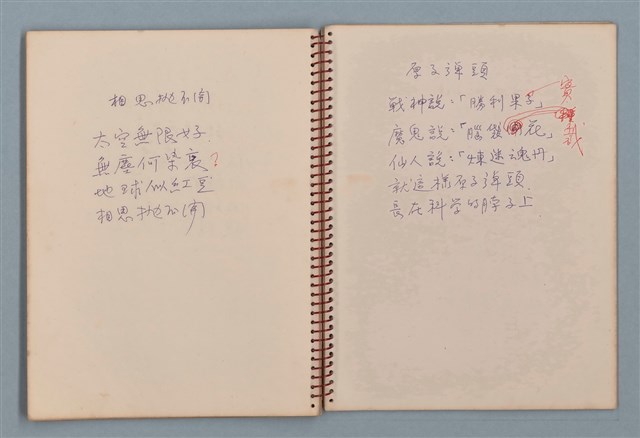 相思抛不開
太空無限好
無塵何染哀?
地球似紅豆
相思抛不開
原子弹頭
戰神說:「勝利果子」
實
魔鬼說:「腦發 花」
種我
仙人說:「煉迷魂丹」
就這樣原子弹頭,
長在科学的脖子上